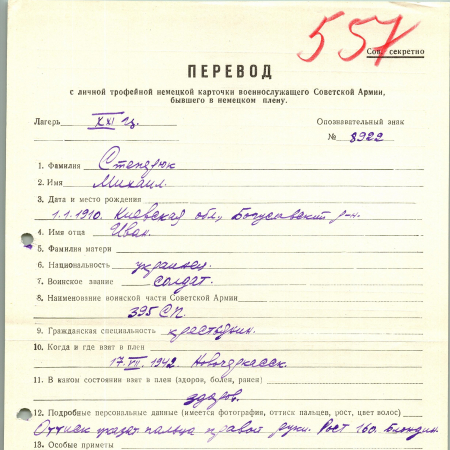 557
Сов. секретно
ПЕРЕВОД
с личной трофейной немецкой карточки военнослужащего Советской Армии,
бывшего в немецком плену.
Лагерь XXI Ц. Опознавательный знак
№ 8922
1. Фамилия Стендрюк
2. Имя Михаил.
3. Дата и место рождения
1.1.1910. Киевская обл., Богуславский р-н.
4. Имя отца Иван.
5. Фамилия матери
6. Национальность украинец.
7. Воинское звание солдат.
8. Наименование воинской части Советской Армии
395 СП.
9. Гражданская специальность крестьянин.
10. Когда и где взят в плен
17.VII.1942. Новочеркасск.
11. В каком состоянии взят в плен (здоров, болен, ранен)
здоров.
12. Подробные персональные данные (имеется фотография, оттиск пальцев, рост, цвет волос)
Оттиск указат. пальца правой руки. Рост 160. Блондин.
13. Особые приметы